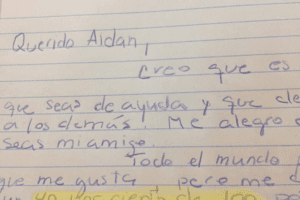 Querido Aidan,
Creo que es
que seas de ayuda y que
a los demás. Me alegro
seas mi amigo.
Todo el mundo
que me gusta pero me